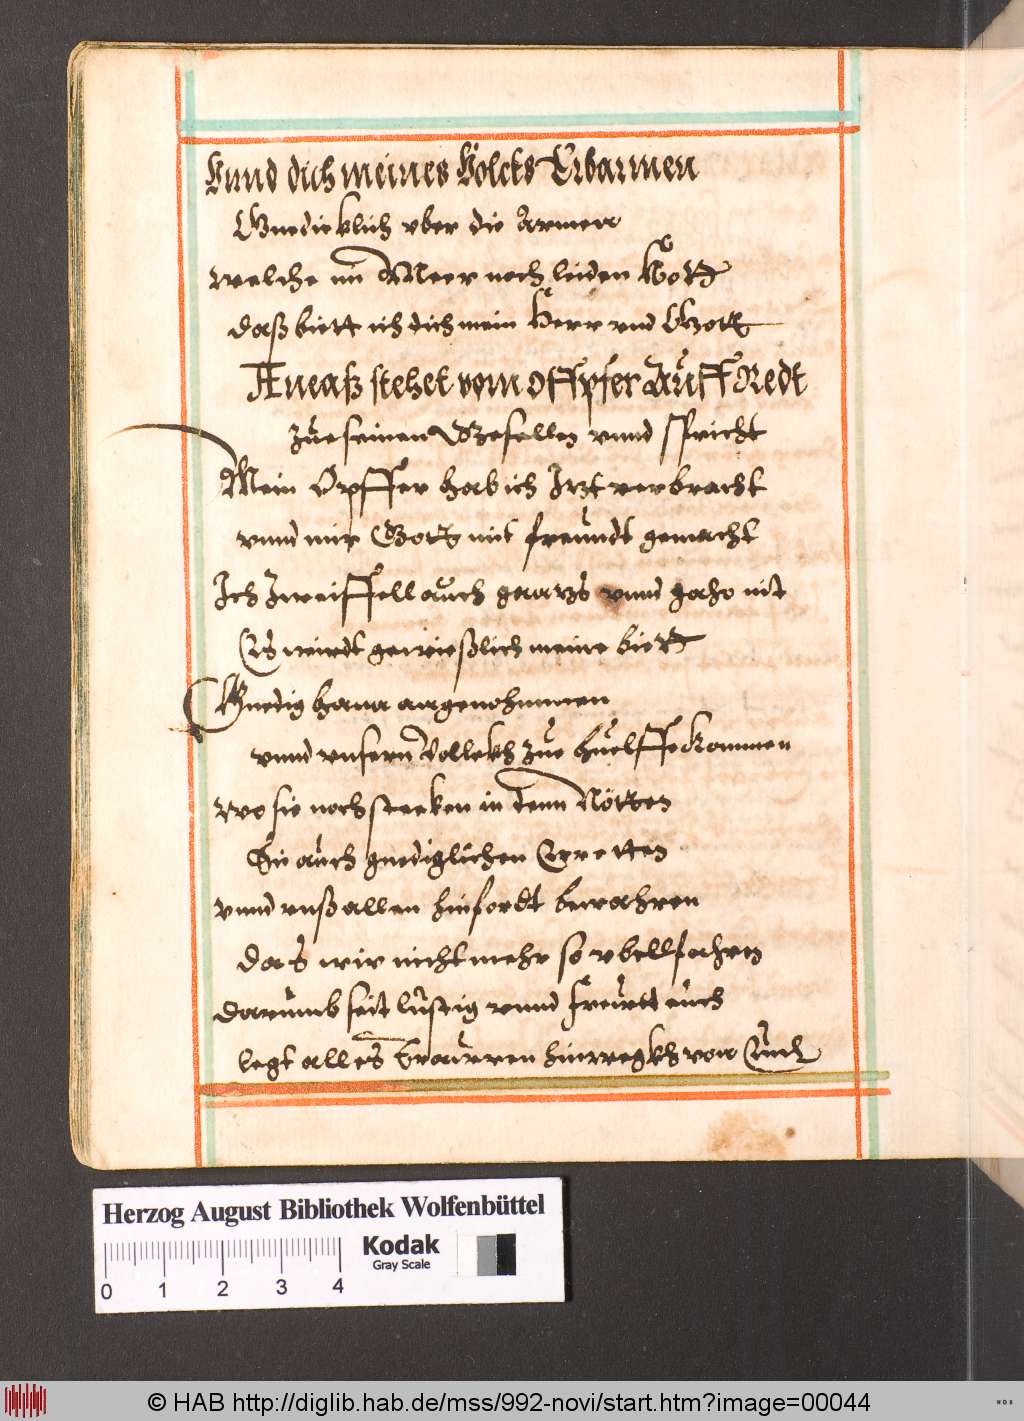 Vnnd dich meines Volcks Erbarmen
Gnedieklich vber die Armen
welche im Meer noch leiden Nott
daß biett ich dich mein Herr vnd Gott
Aneaß stehet vom Offpfer Auff Redt
zue seinen Gesellen vnnd spricht
Mein Opffer hab ich Jtzt verbracht
vnnd mir Gott mit freundt gemacht
Ich Zweiffell auch gantz vnnd gahr nit
Es wirdt gewießlich meine biett
Gnedig hann angenohmmen
vnnd vnserm Vollekh zue huelffe kommen
wo sie noch stecken in denn Nötten
Sie auch gnediglichen Erretten
vnnd vnß allen hinfordt bewahren
das wir nicht mehr so vbell fahren
darumb seit lustig vnnd freuett euch
legt alles trauren hinwegkh von Euch
Herzog August Bibliothek Wolfenbüttel
Kodak
Gray Scale
0 1 2 3 4
© HAB http://diglib.hab.de/mss/992-novi/start.htm?image=00044